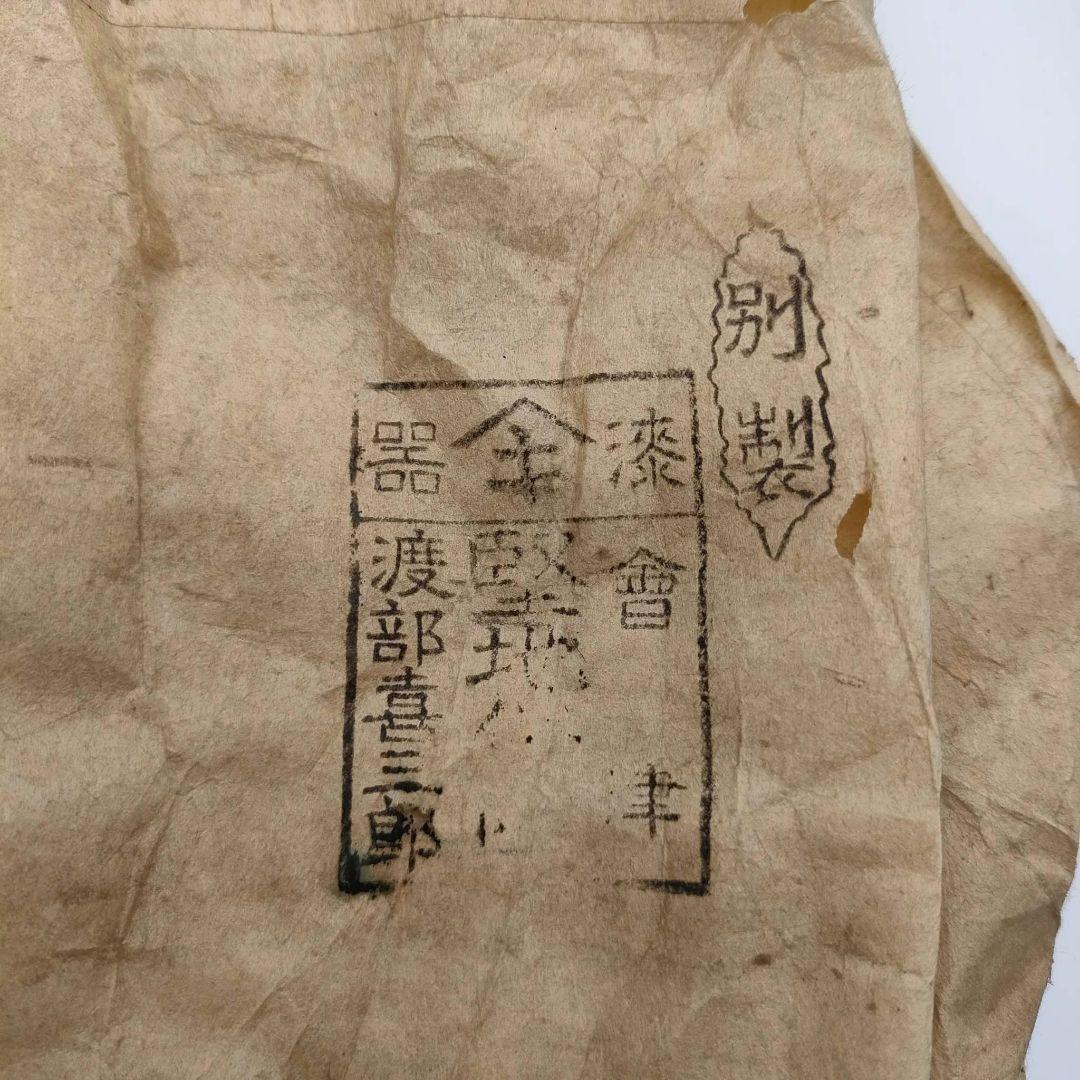 別製
漆器
會津
堅地
渡部喜三郎